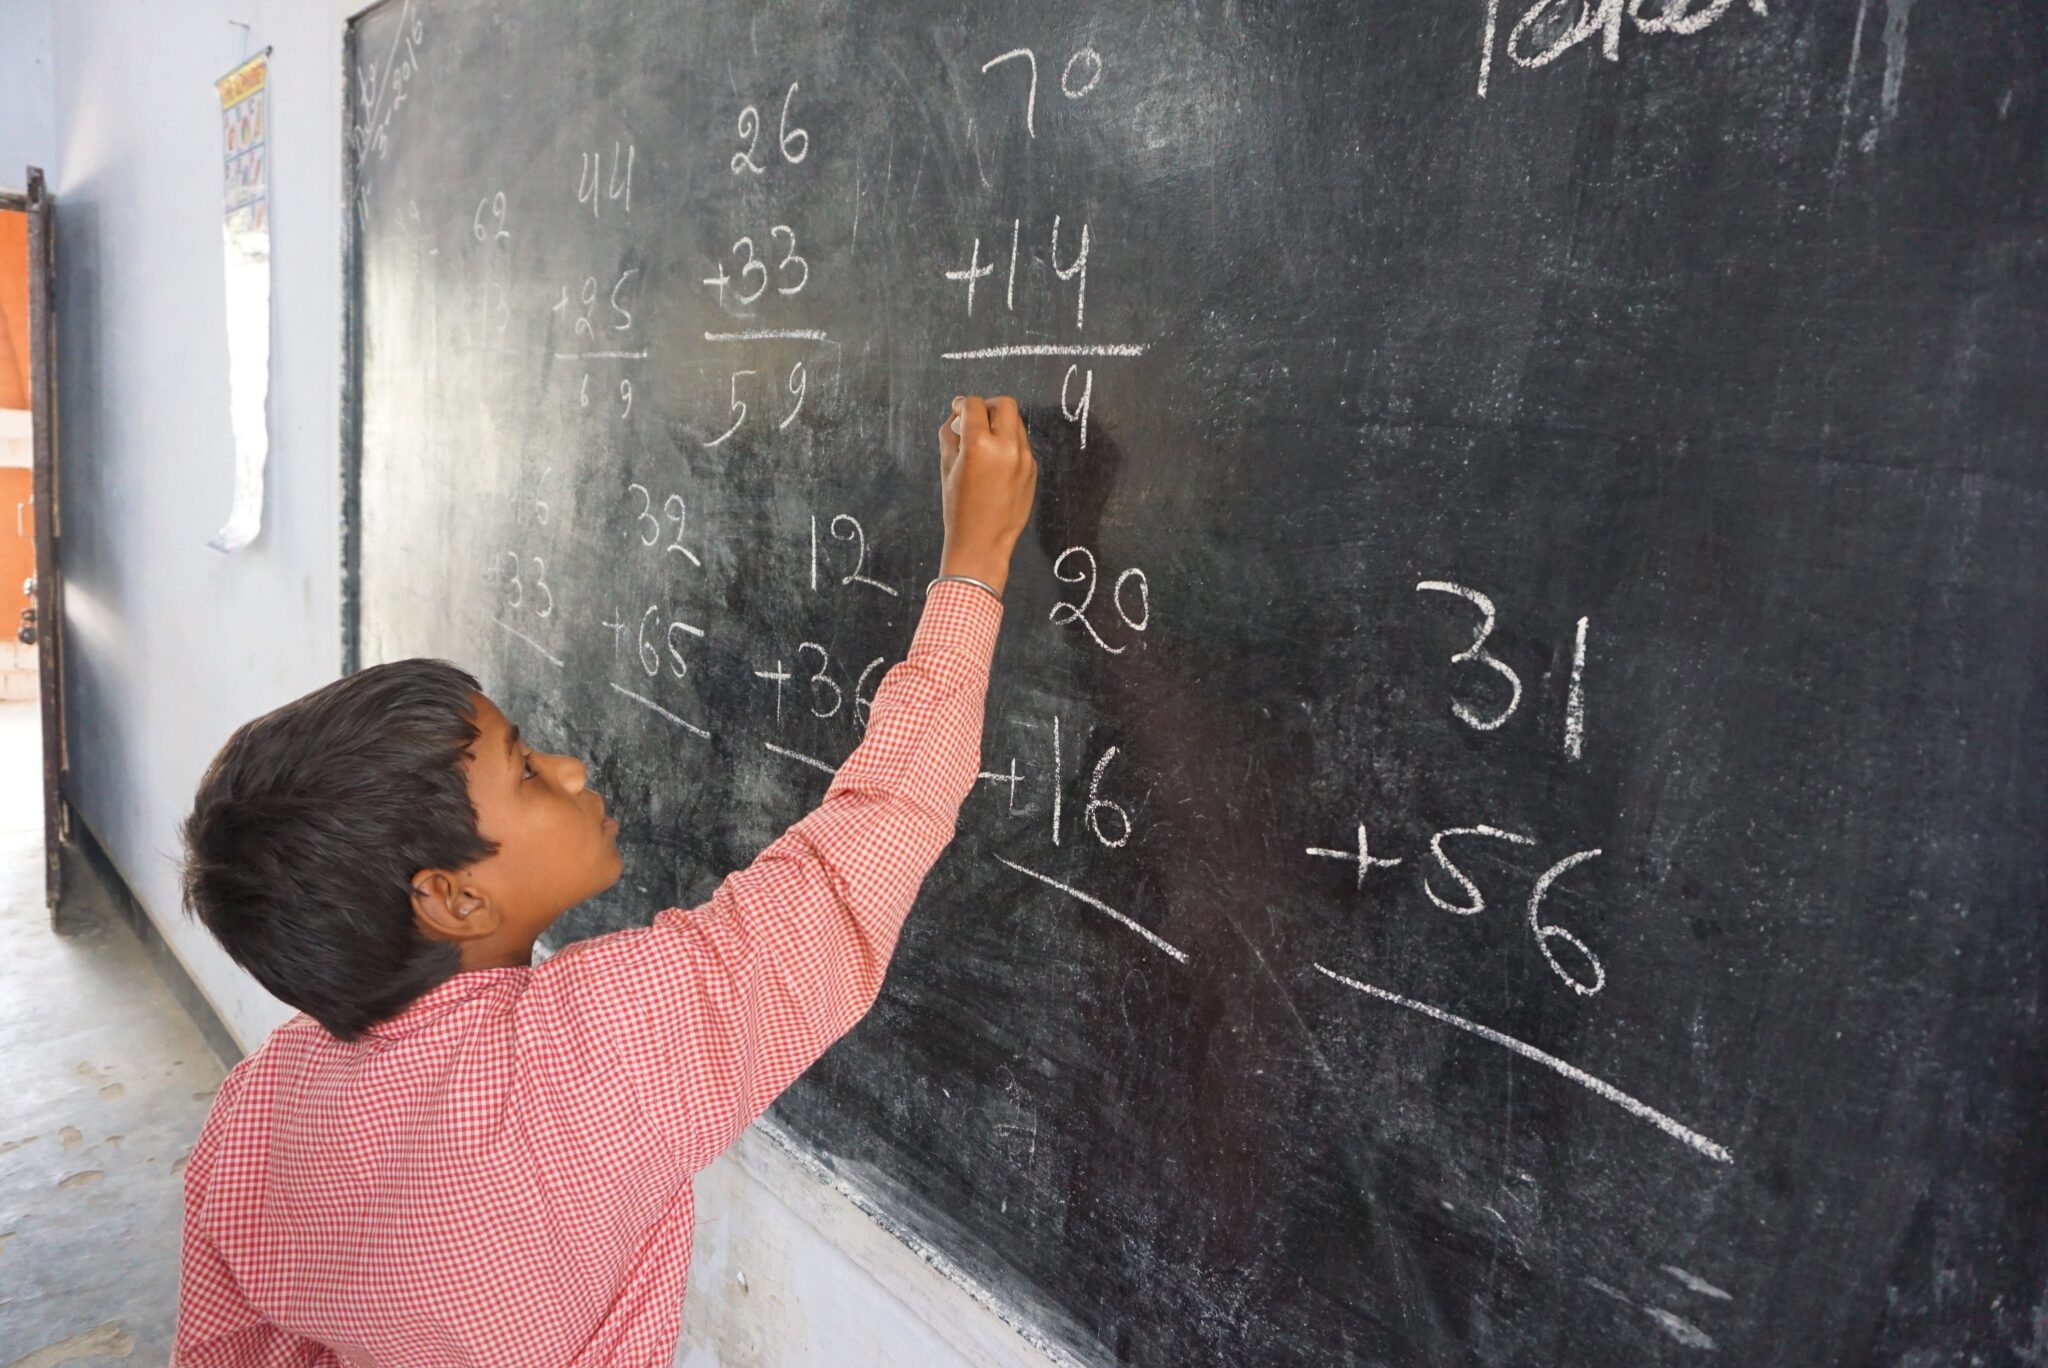 2016
62
44
26
70
13
+25
+33
+14
69
59
4
6
32
12
20
31
+33
+65
+36
+16
+56